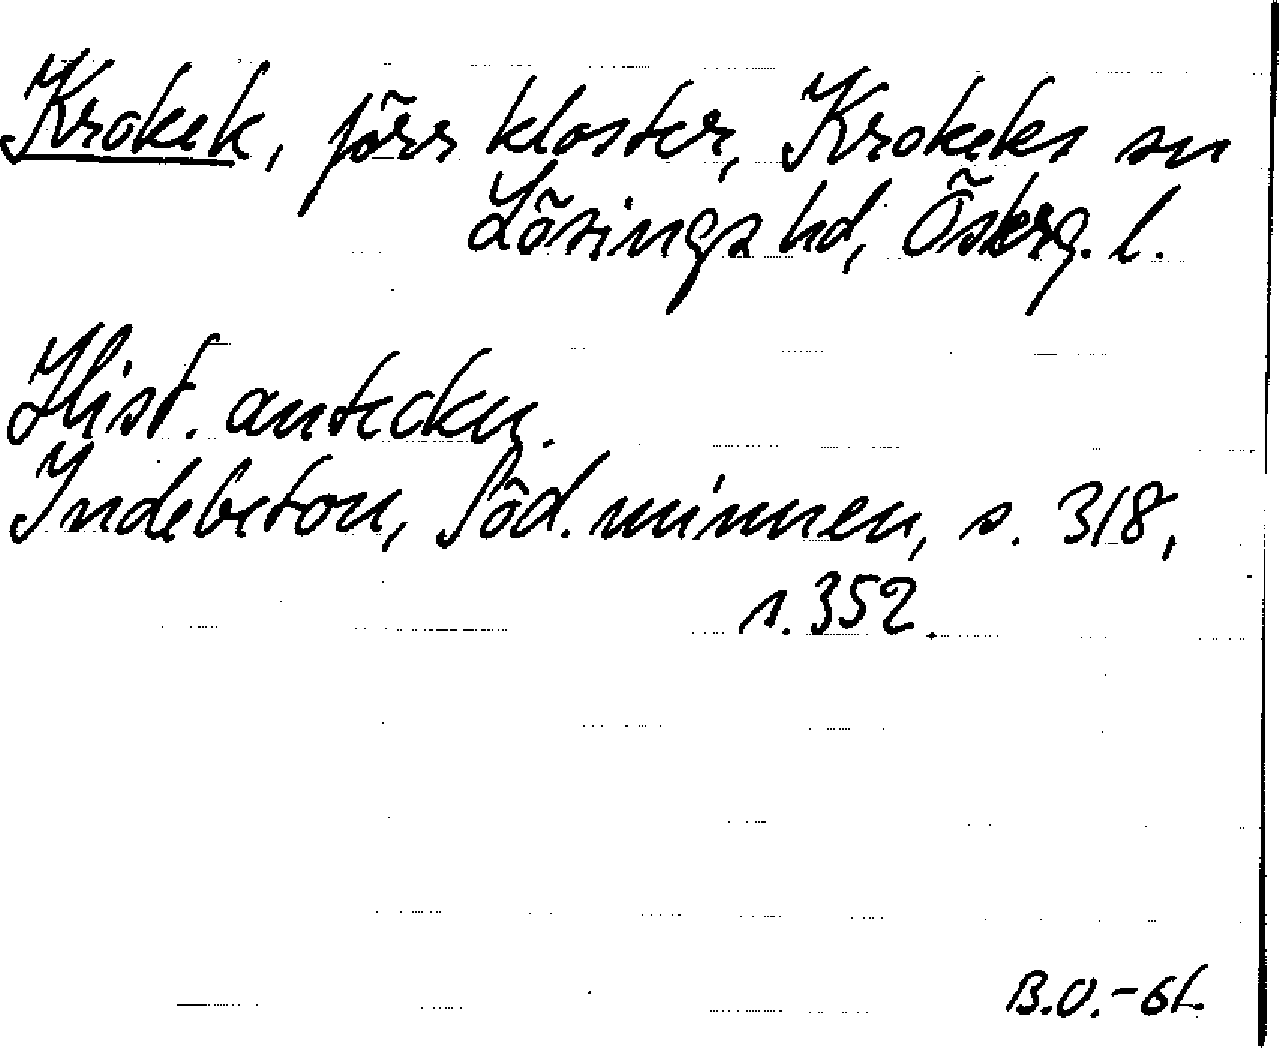 Krokek, förr kloster, Krokeks sn
Lösings hd, Österg. l.
Hist. anteckn.
Indebetou, Söd. minnen, s. 318,
s. 352.
B.O.-61.